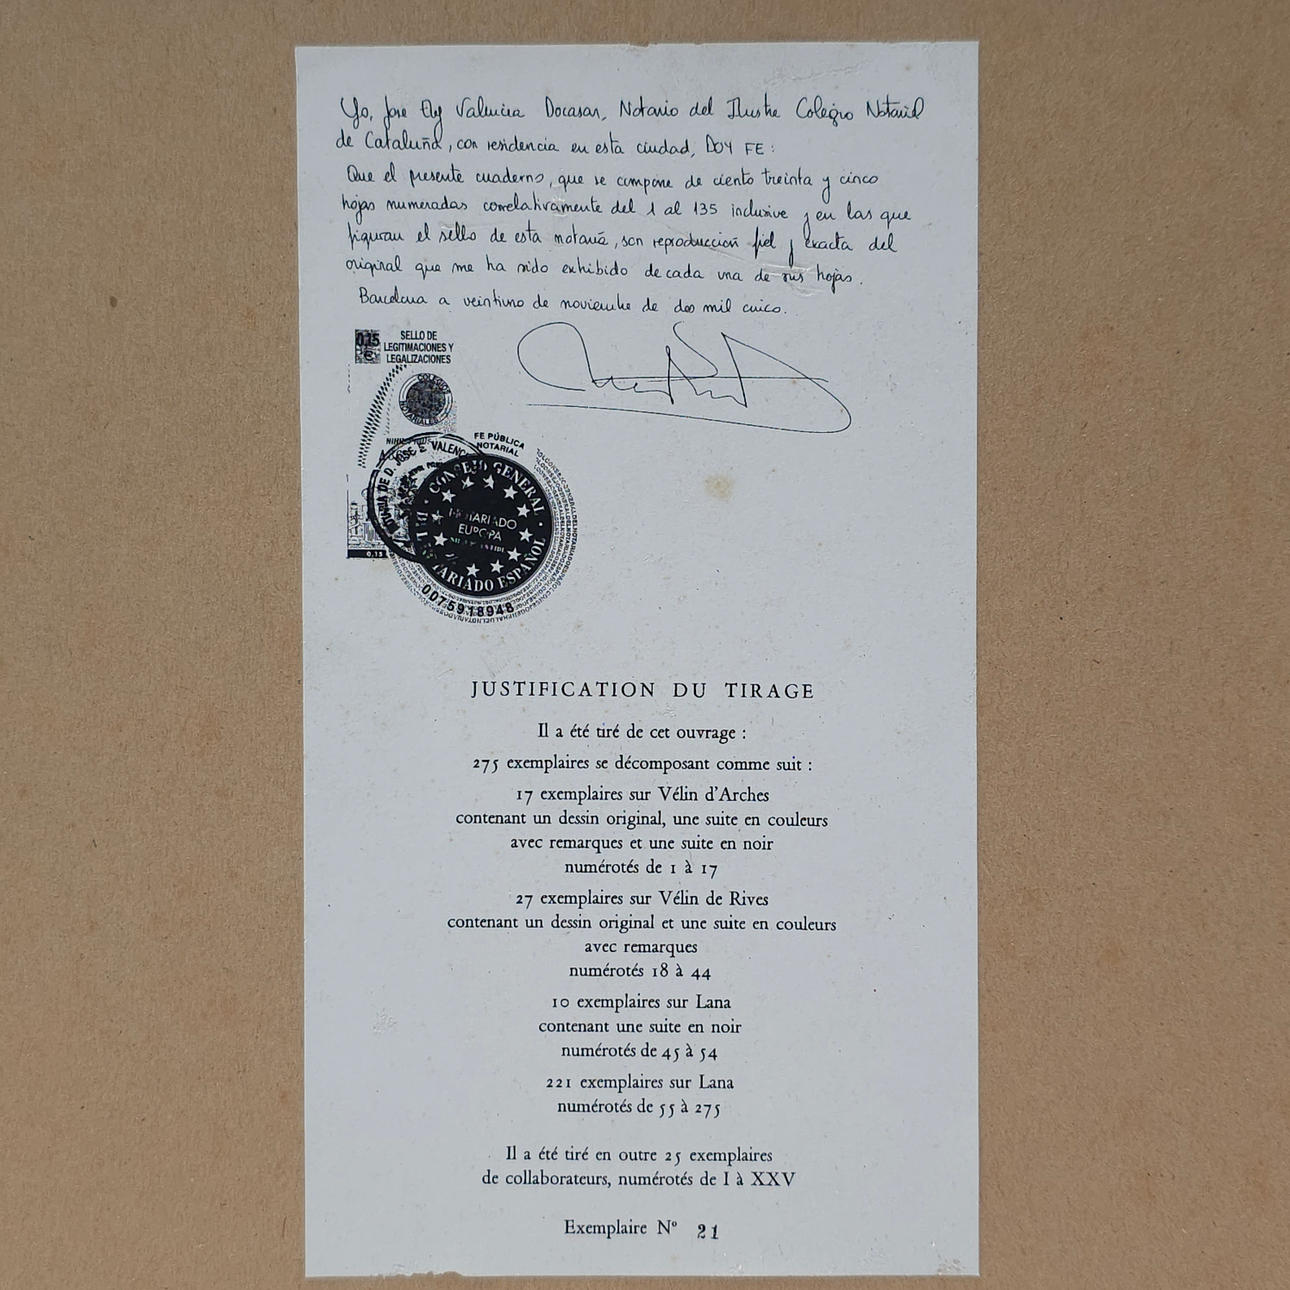 Yo, Jose Eloy Valencia Docasar, Notario del Ilustre Colegio Notarial
de Cataluña, con residencia en esta ciudad, DOY FE:
Que el presente cuaderno, que se compone de ciento treinta y cinco
hojas numeradas correlativamente del 1 al 135 inclusive y en las que
figuran el sello de esta notaría, son reproducción fiel y exacta del
original que me ha sido exhibido de cada una de sus hojas.
Barcelona a veintiuno de noviembre de dos mil cinco.
0,15
€
SELLO DE
LEGITIMACIONES Y
LEGALIZACIONES
COLEGIOS
NOTARIALES
FE PÚBLICA
NOTARIAL
NOTARIA DE D. JOSE E. VALENC
CONSEJO GENERAL
DEL NOTARIADO ESPAÑOL
NOTARIADO
EUROPA
0,15
0075918948
JUSTIFICATION DU TIRAGE
Il a été tiré de cet ouvrage :
275 exemplaires se décomposant comme suit :
17 exemplaires sur Vélin d'Arches
contenant un dessin original, une suite en couleurs
avec remarques et une suite en noir
numérotés de 1 à 17
27 exemplaires sur Vélin de Rives
contenant un dessin original et une suite en couleurs
avec remarques
numérotés 18 à 44
10 exemplaires sur Lana
contenant une suite en noir
numérotés de 45 à 54
221 exemplaires sur Lana
numérotés de 55 à 275
Il a été tiré en outre 25 exemplaires
de collaborateurs, numérotés de I à XXV
Exemplaire Nº 21